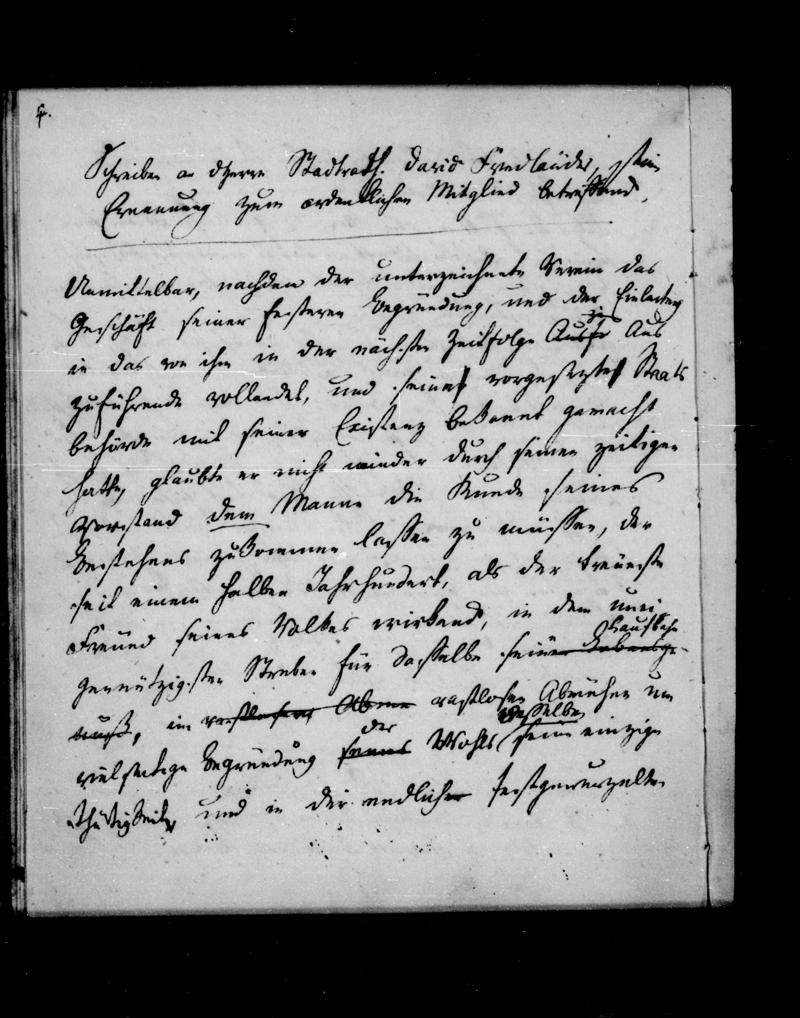 4.
Schreiben an Herrn Stadtrath David Friedländer, seine
Ernennung zum ordentlichen Mitglied betreffend.
Unmittelbar, nachdem der unterzeichnete Verein das
Geschäft seiner festeren Begründung, und der Einleitung
in das von ihm in der nächsten Zeitfolge Aus
zuführende vollendet, und seine vorgesetzte Staats
behörde mit seiner Existenz bekannt gemacht
hatte, glaubte er nicht minder durch seinen zeitigen
Vorstand dem Manne die Kunde seines
Bestehens zukommen lassen zu müssen, der
seit einem halben Jahrhundert, als der treueste
Freund seines Volkes wirkend, in dem unei
gennützigsten Streben für dasselbe seine Laufbahn
im rastlosen Abmühen um
vielseitige Begründung der Wohls desselben seine einzige
Thätigkeit, und in der endlich festgewurzelten